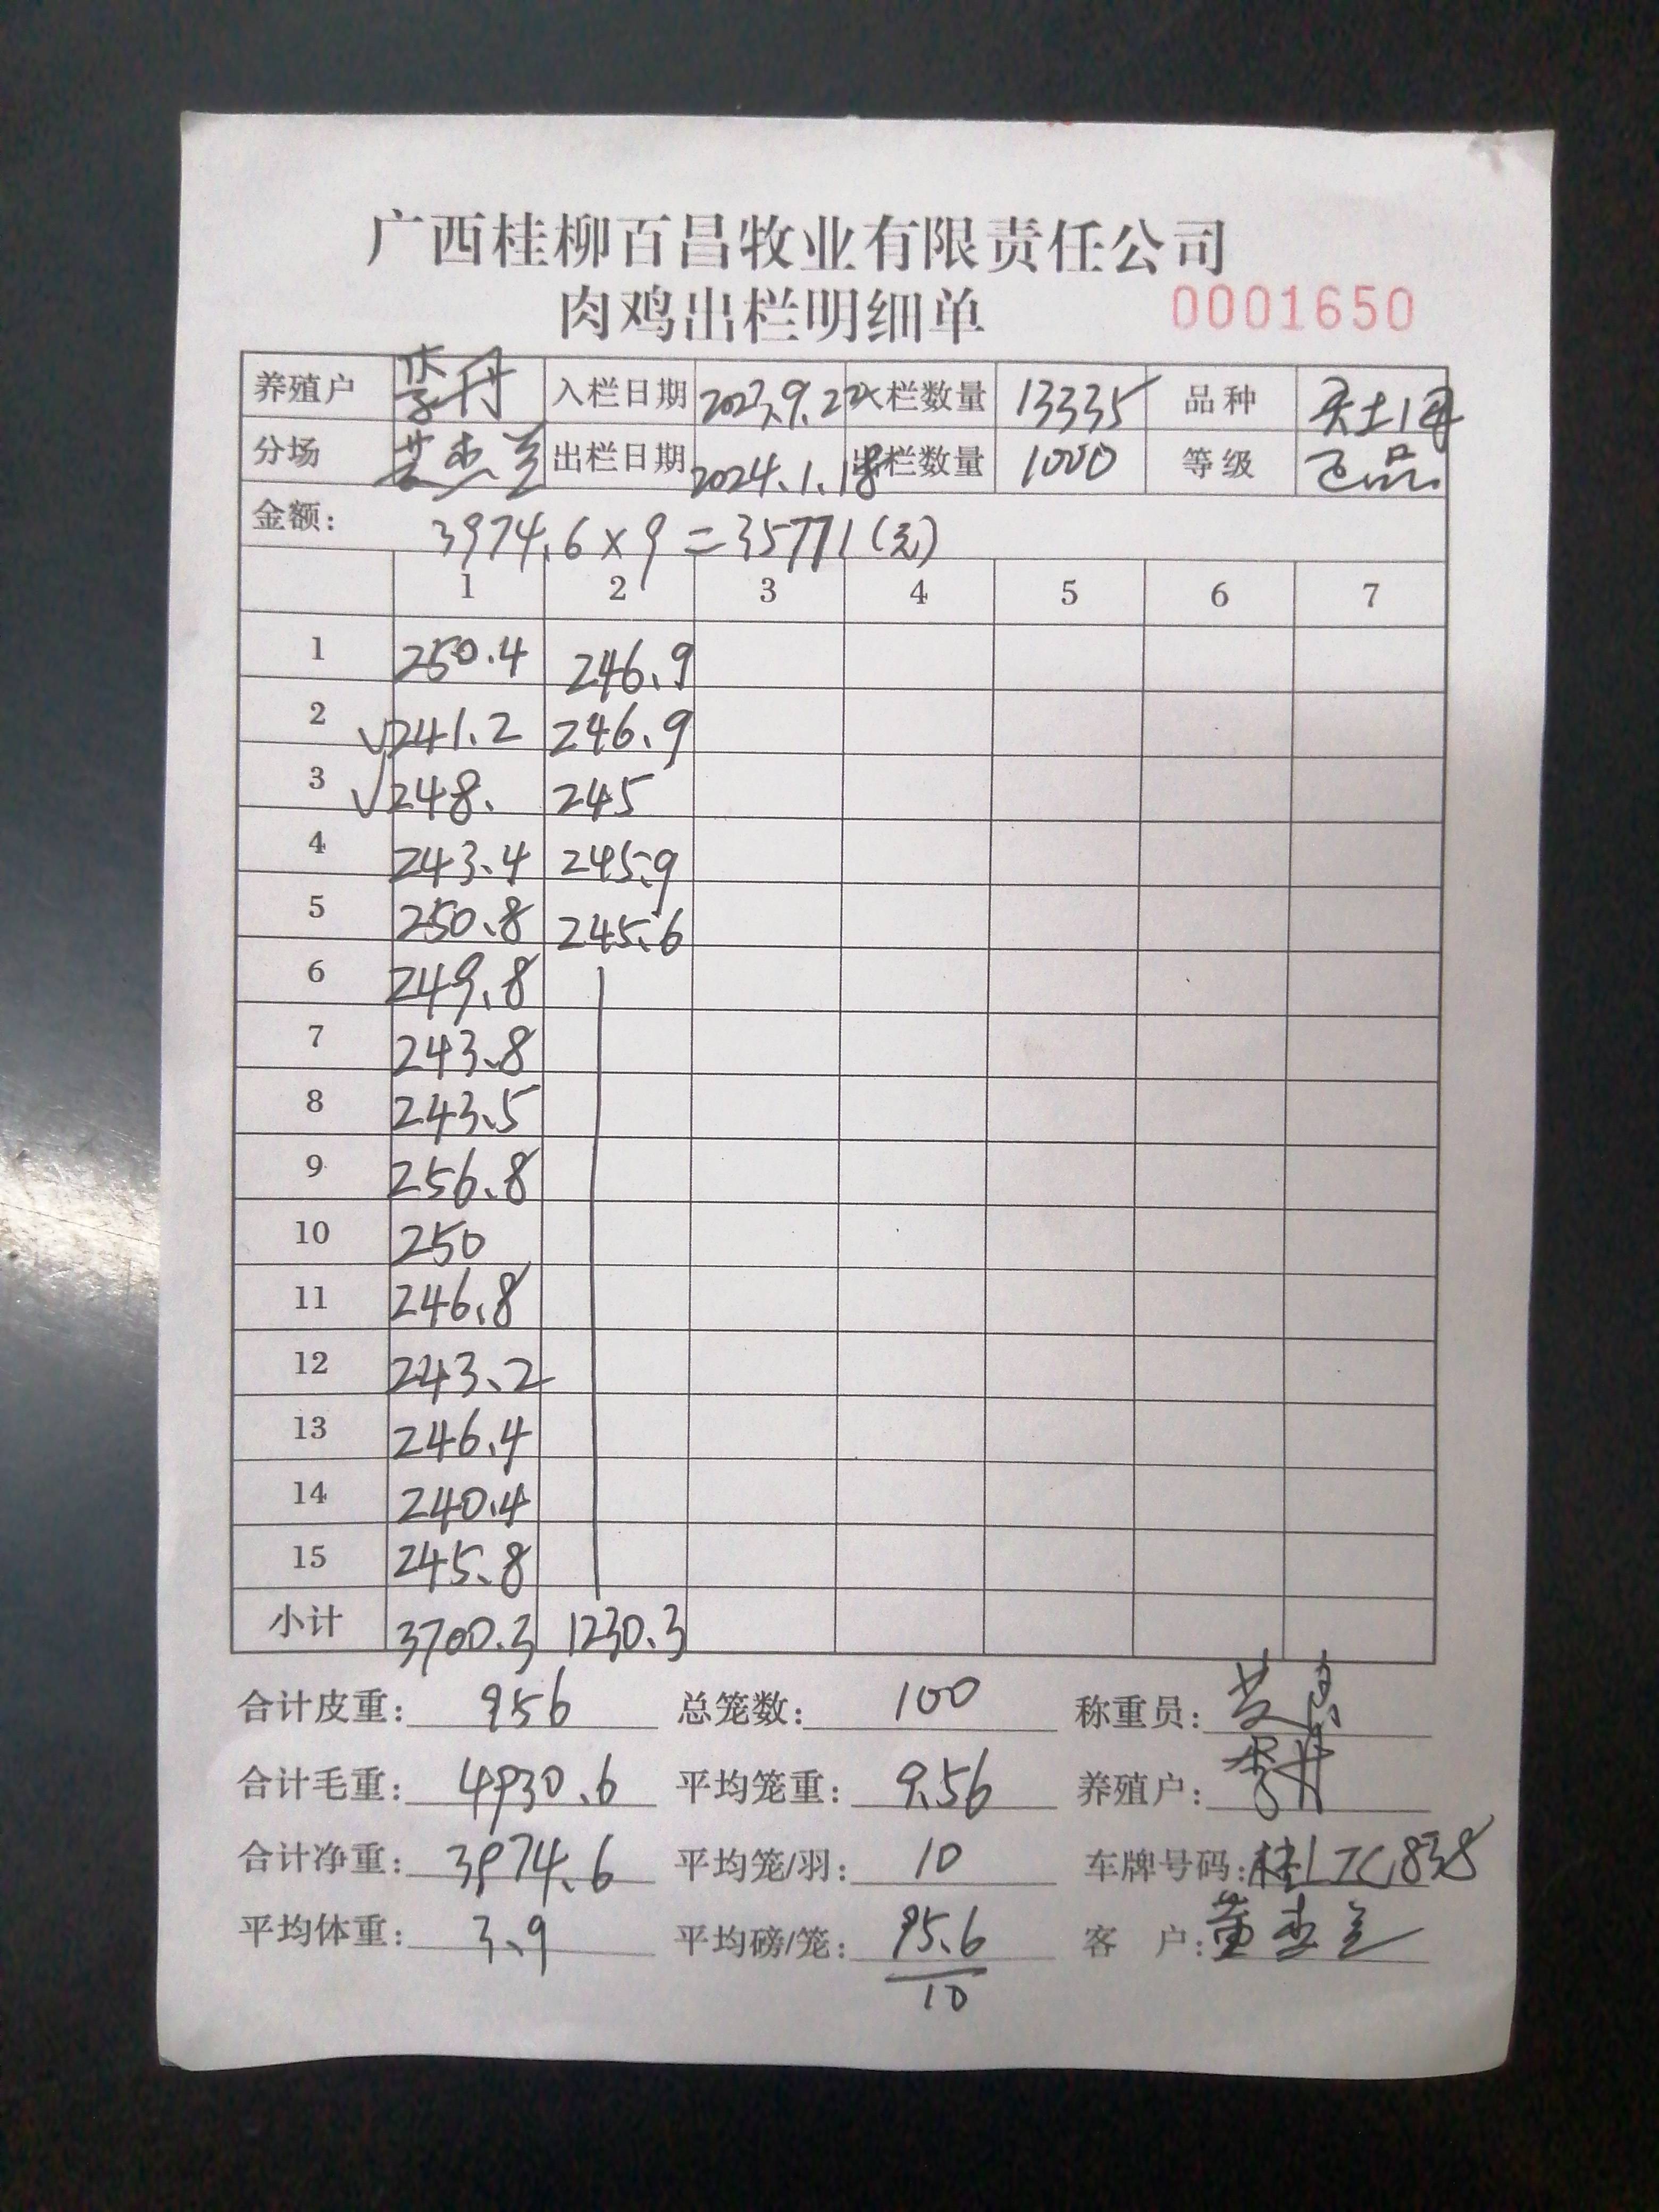 广西桂柳百昌牧业有限责任公司
肉鸡出栏明细单 0001650
养殖户 李丹 入栏日期 2023.9.22 入栏数量 13335 品种
分场 出栏日期 2024.1.18 出栏数量 1000 等级 正品
金额: 3974.6×9=35771(元)
1 2 3 4 5 6 7
1 250.4 246.9
2 √241.2 246.9
3 √248. 245
4 243.4 245.9
5 250.8 245.6
6 249.8
7 243.8
8 243.5
9 256.8
10 250
11 246.8
12 243.2
13 246.4
14 240.4
15 245.8
小计 3700.3 1230.3
合计皮重: 956 总笼数: 100 称重员:
合计毛重: 4930.6 平均笼重: 9.56 养殖户: 李丹
合计净重: 3974.6 平均笼/羽: 10 车牌号码:
平均体重: 3.9 平均磅/笼: 95.6 客 户:
10